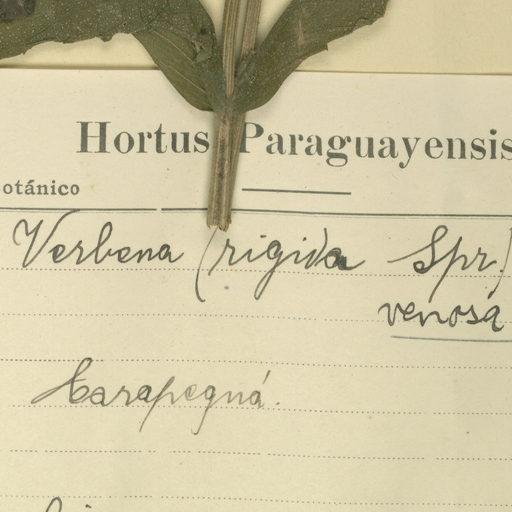 Hortus Paraguayensis
otánico
Verbena (rigida Spr.)
venosa
Carapeguá.